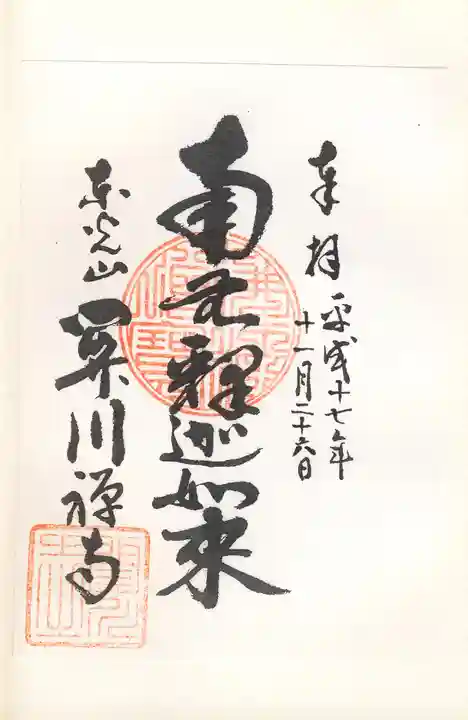 奉拝
平成十七年
十一月二十六日
南无釋迦如来
東光山
関川禅寺